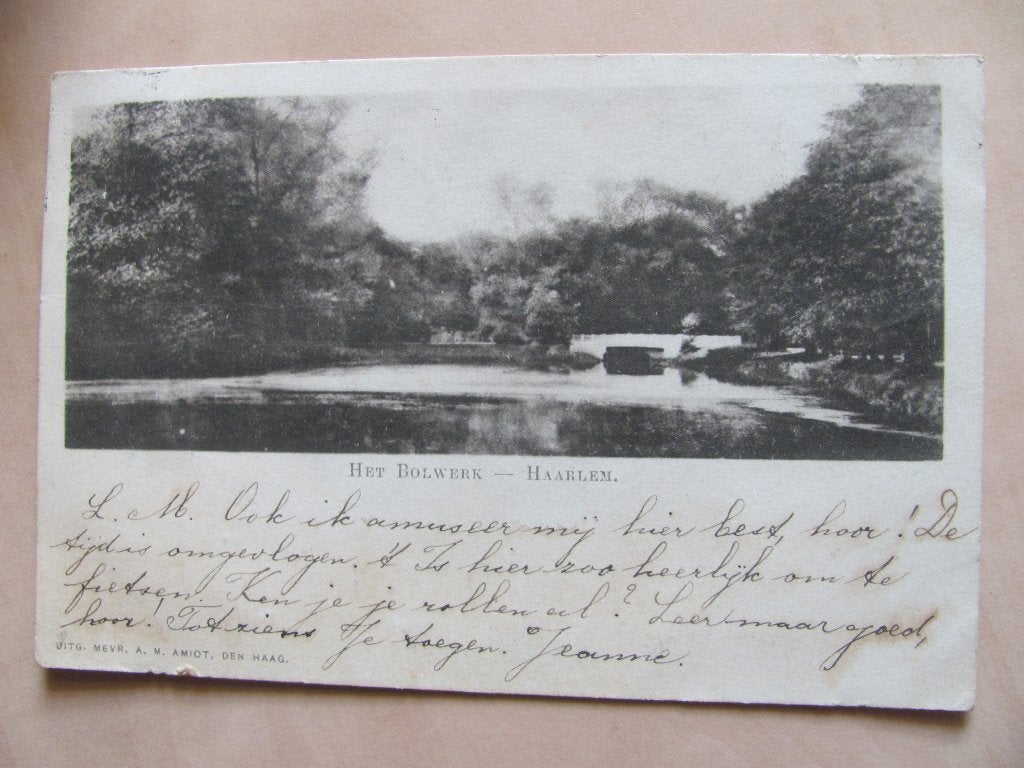 HET BOLWERK — HAARLEM.
L. M. Ook ik amuseer mij hier best, hoor! De
tijd is omgevlogen. 't Is hier zoo heerlijk om te
fietsen. Ken je je rollen al? Leer maar goed,
hoor! Tot ziens Je toegen. Jeanne.
UITG. MEVR. A. M. AMIOT, DEN HAAG.